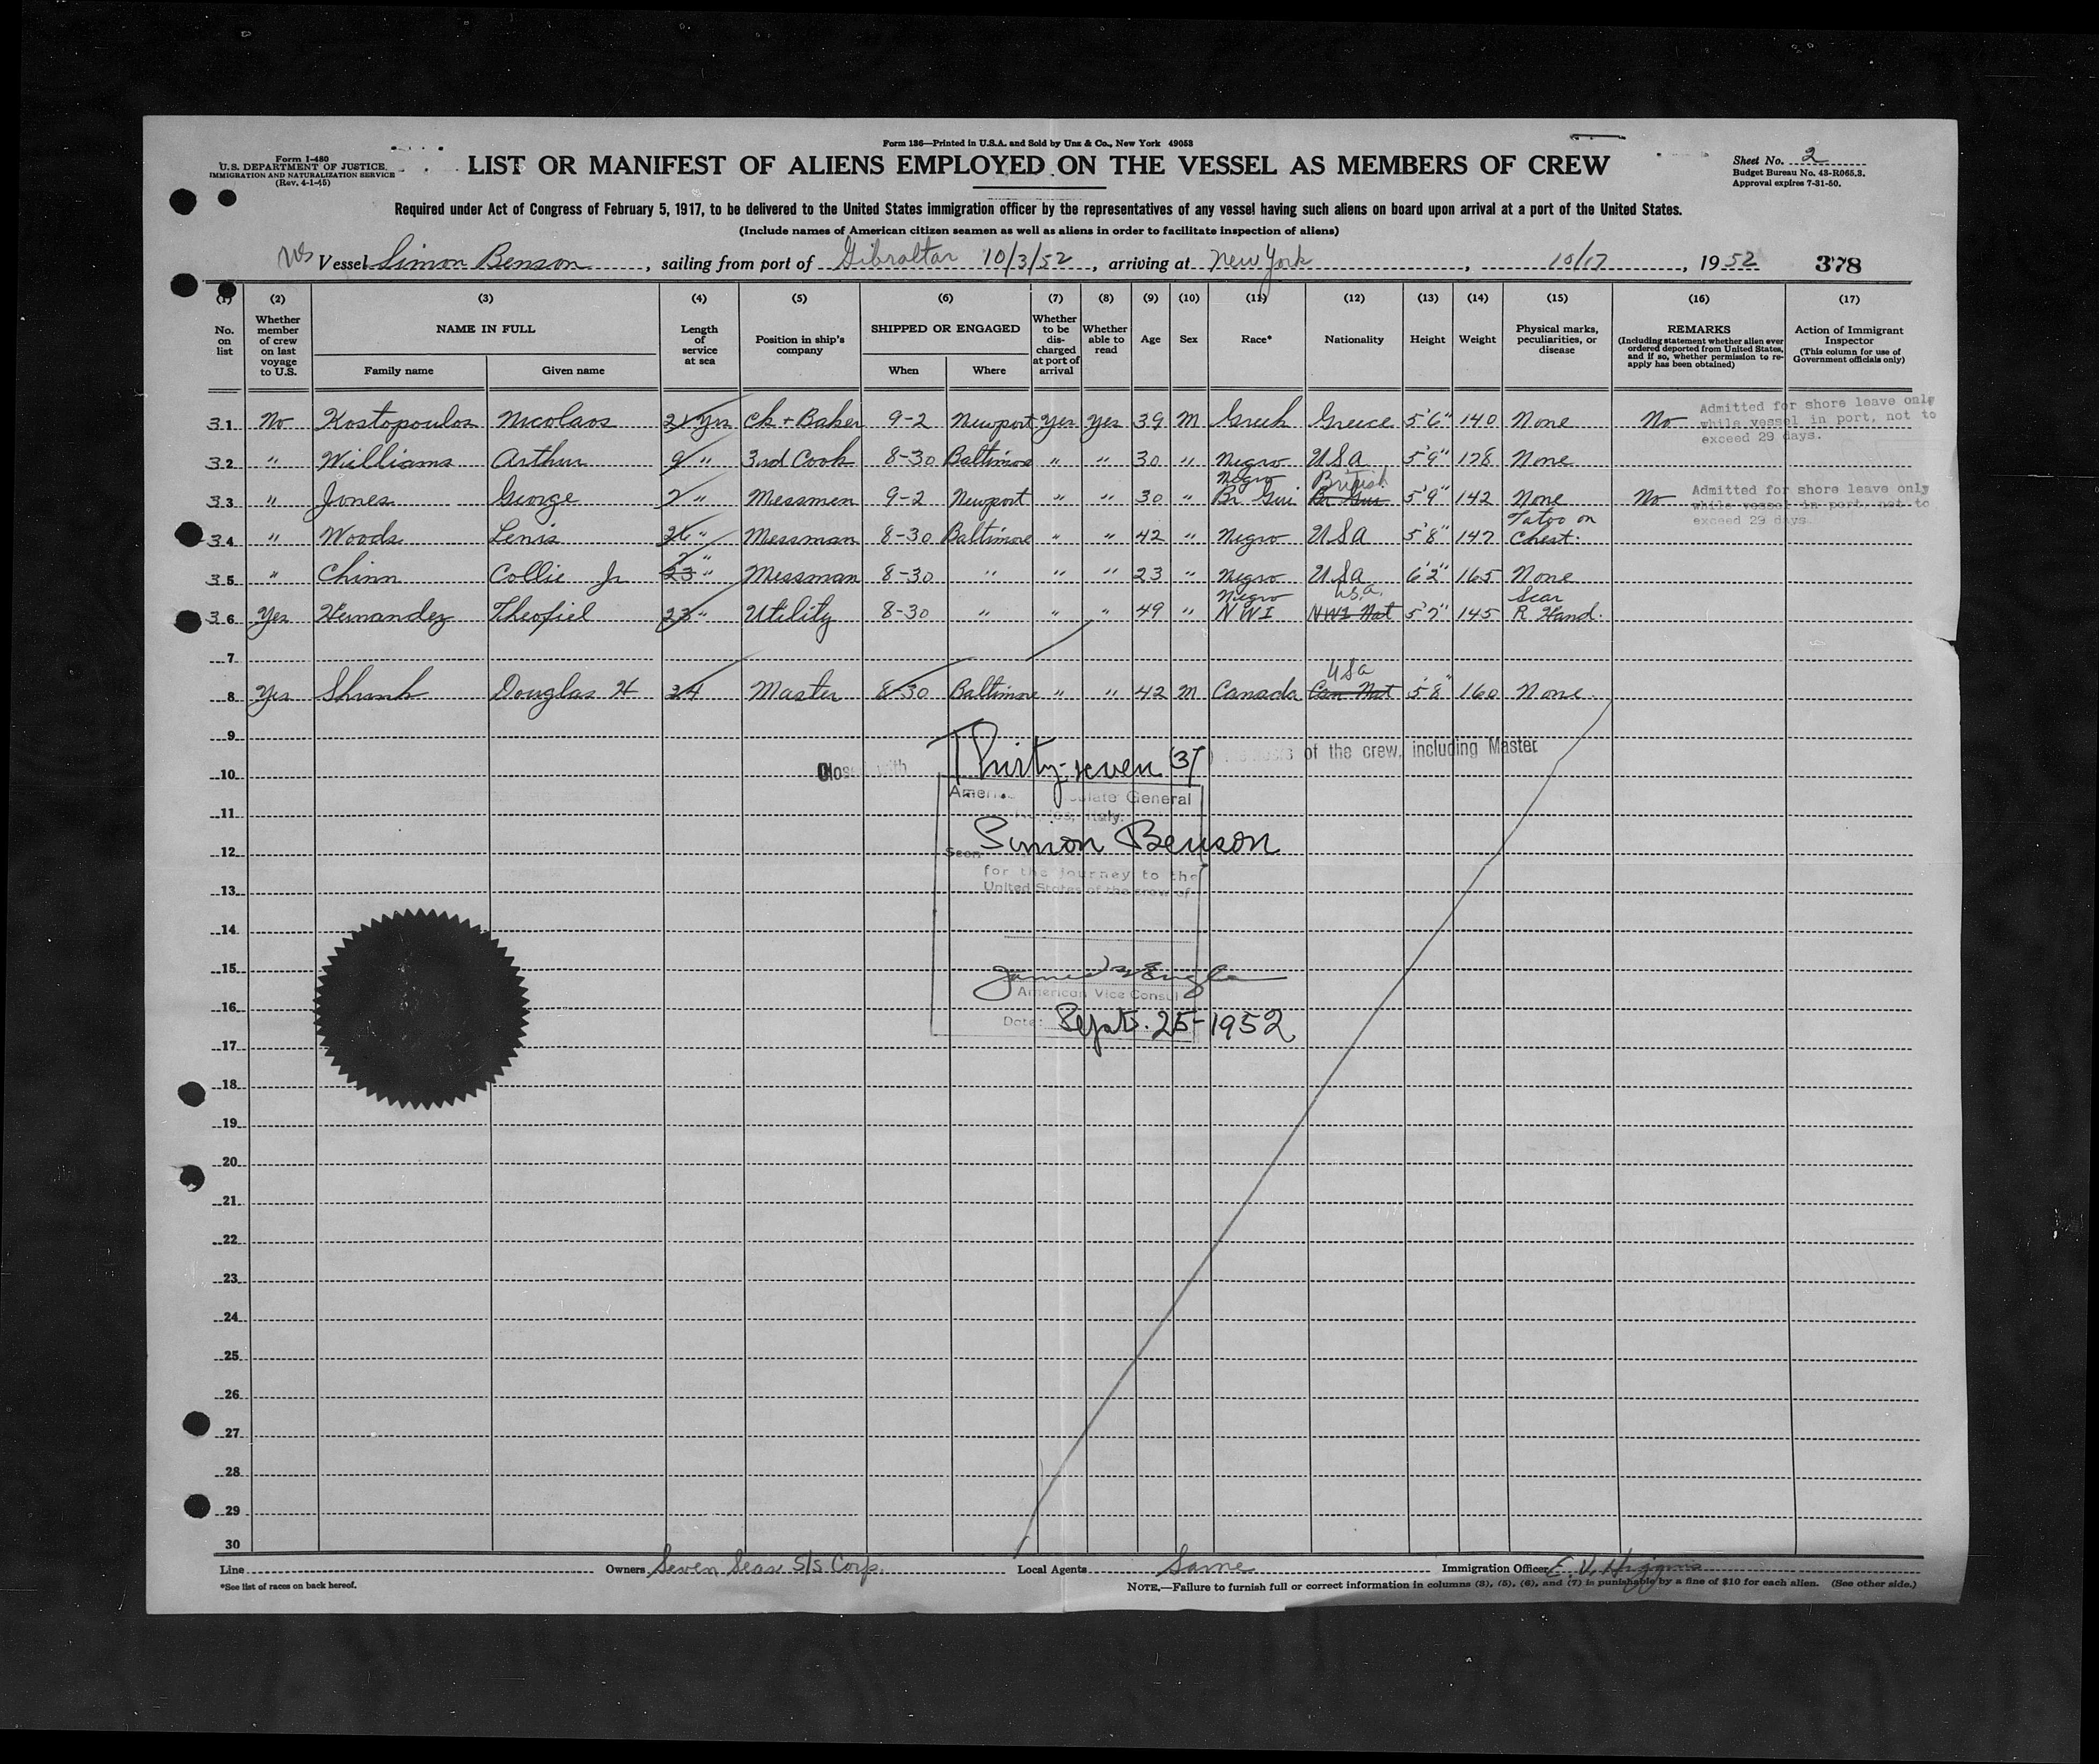 Form 136—Printed in U.S.A. and Sold by Unz & Co., New York 49053
Form I-480
U.S. DEPARTMENT OF JUSTICE
IMMIGRATION AND NATURALIZATION SERVICE
(Rev. 4-1-45)
LIST OR MANIFEST OF ALIENS EMPLOYED ON THE VESSEL AS MEMBERS OF CREW
Sheet No. 2
Budget Bureau No. 43-R065.3.
Approval expires 7-31-50.
Required under Act of Congress of February 5, 1917, to be delivered to the United States immigration officer by the representatives of any vessel having such aliens on board upon arrival at a port of the United States.
(Include names of American citizen seamen as well as aliens in order to facilitate inspection of aliens)
Vessel Simon Benson, sailing from port of Gibraltar 10/3/52, arriving at New York, 10/17, 1952 378
(1) (2) (3) (4) (5) (6) (7) (8) (9) (10) (11) (12) (13) (14) (15) (16) (17)
No. on list
Whether member of crew on last voyage to U.S.
NAME IN FULL
Family name Given name
Length of service at sea
Position in ship's company
SHIPPED OR ENGAGED
When Where
Whether to be discharged at port of arrival
Whether able to read
Age
Sex
Race*
Nationality
Height
Weight
Physical marks, peculiarities, or disease
REMARKS
(Including statement whether alien ever ordered deported from United States, and if so, whether permission to reapply has been obtained)
Action of Immigrant Inspector
(This column for use of Government officials only)
31 No Kostopoulos Nicolaos 21 yrs Ck + Baker 9-2 Newport Yes Yes 39 M Greek Greece 5'6" 140 None No
Admitted for shore leave only
while vessel in port, not to
exceed 29 days.
32 " Williams Arthur 9 " 3rd Cook 8-30 Baltimore " " 30 " Negro USA 5'9" 178 None
Negro British
33 " Jones George 2 " Messmen 9-2 Newport " " 30 " Br Gui Br Gui 5'9" 142 None No
Admitted for shore leave only
while vessel in port, not to
exceed 29 days
Tatoo on
34 " Woods Lenis 26 " Messman 8-30 Baltimore " " 42 " Negro USA 5'8" 147 Chest.
35 " Chinn Collie Jr 23 " Messman 8-30 " " " 23 " Negro USA 6'2" 165 None
Negro U.S.A. Scar
36 Yes Hernandez Theofiel 23 " Utility 8-30 " " " 49 " NWI NWI Nat 5'7" 145 R Hand.
7
USA
8 Yes Shunk Douglas H 24 Master 8-30 Baltimore " " 42 M Canada Can Nat 5'8" 160 None.
9
Closed with Thirty-seven (37) of the crew, including Master
10
American Consulate General
11
Naples, Italy.
12
Seen Simon Benson
for the journey to the
United States of the crew of
13
14
15
American Vice Consul
16
Date: Sept. 25-1952
17
18
19
20
21
22
23
24
25
26
27
28
29
30
Line Owners Seven Seas S/S Corp. Local Agents Same Immigration Officer E. V. Higgins
*See list of races on back hereof.
NOTE.—Failure to furnish full or correct information in columns (3), (5), (6), and (7) is punishable by a fine of $10 for each alien. (See other side.)